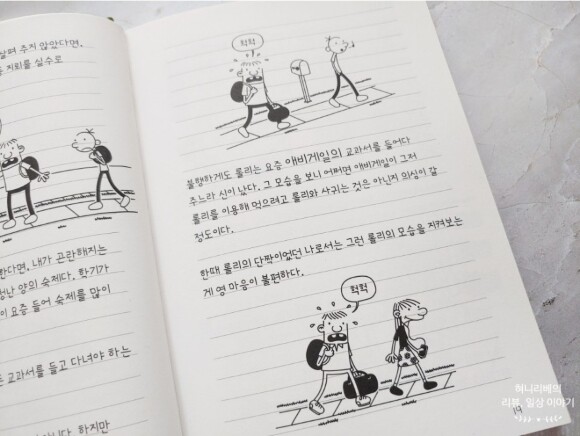 살펴 주지 않았다면,
지퇴를 실수로
한다면, 내가 곤란해지는
양의 숙제다. 학기가
요즘 들어 숙제를 많이
교과서를 들고 다녀야 하는
하지만
헉헉
불행하게도 롤리는 요즘 애비게일의 교과서를 들어다
주느라 신이 났다. 그 모습을 보니 어쩌면 애비게일이 그저
롤리를 이용해 먹으려고 롤리와 사귀는 것은 아닌지 의심이 갈
정도이다.
한때 롤리의 단짝이었던 나로서는 그런 롤리의 모습을 지켜보는
게 영 마음이 불편하다.
헉헉
19
허니리베의
리뷰, 일상 이야기